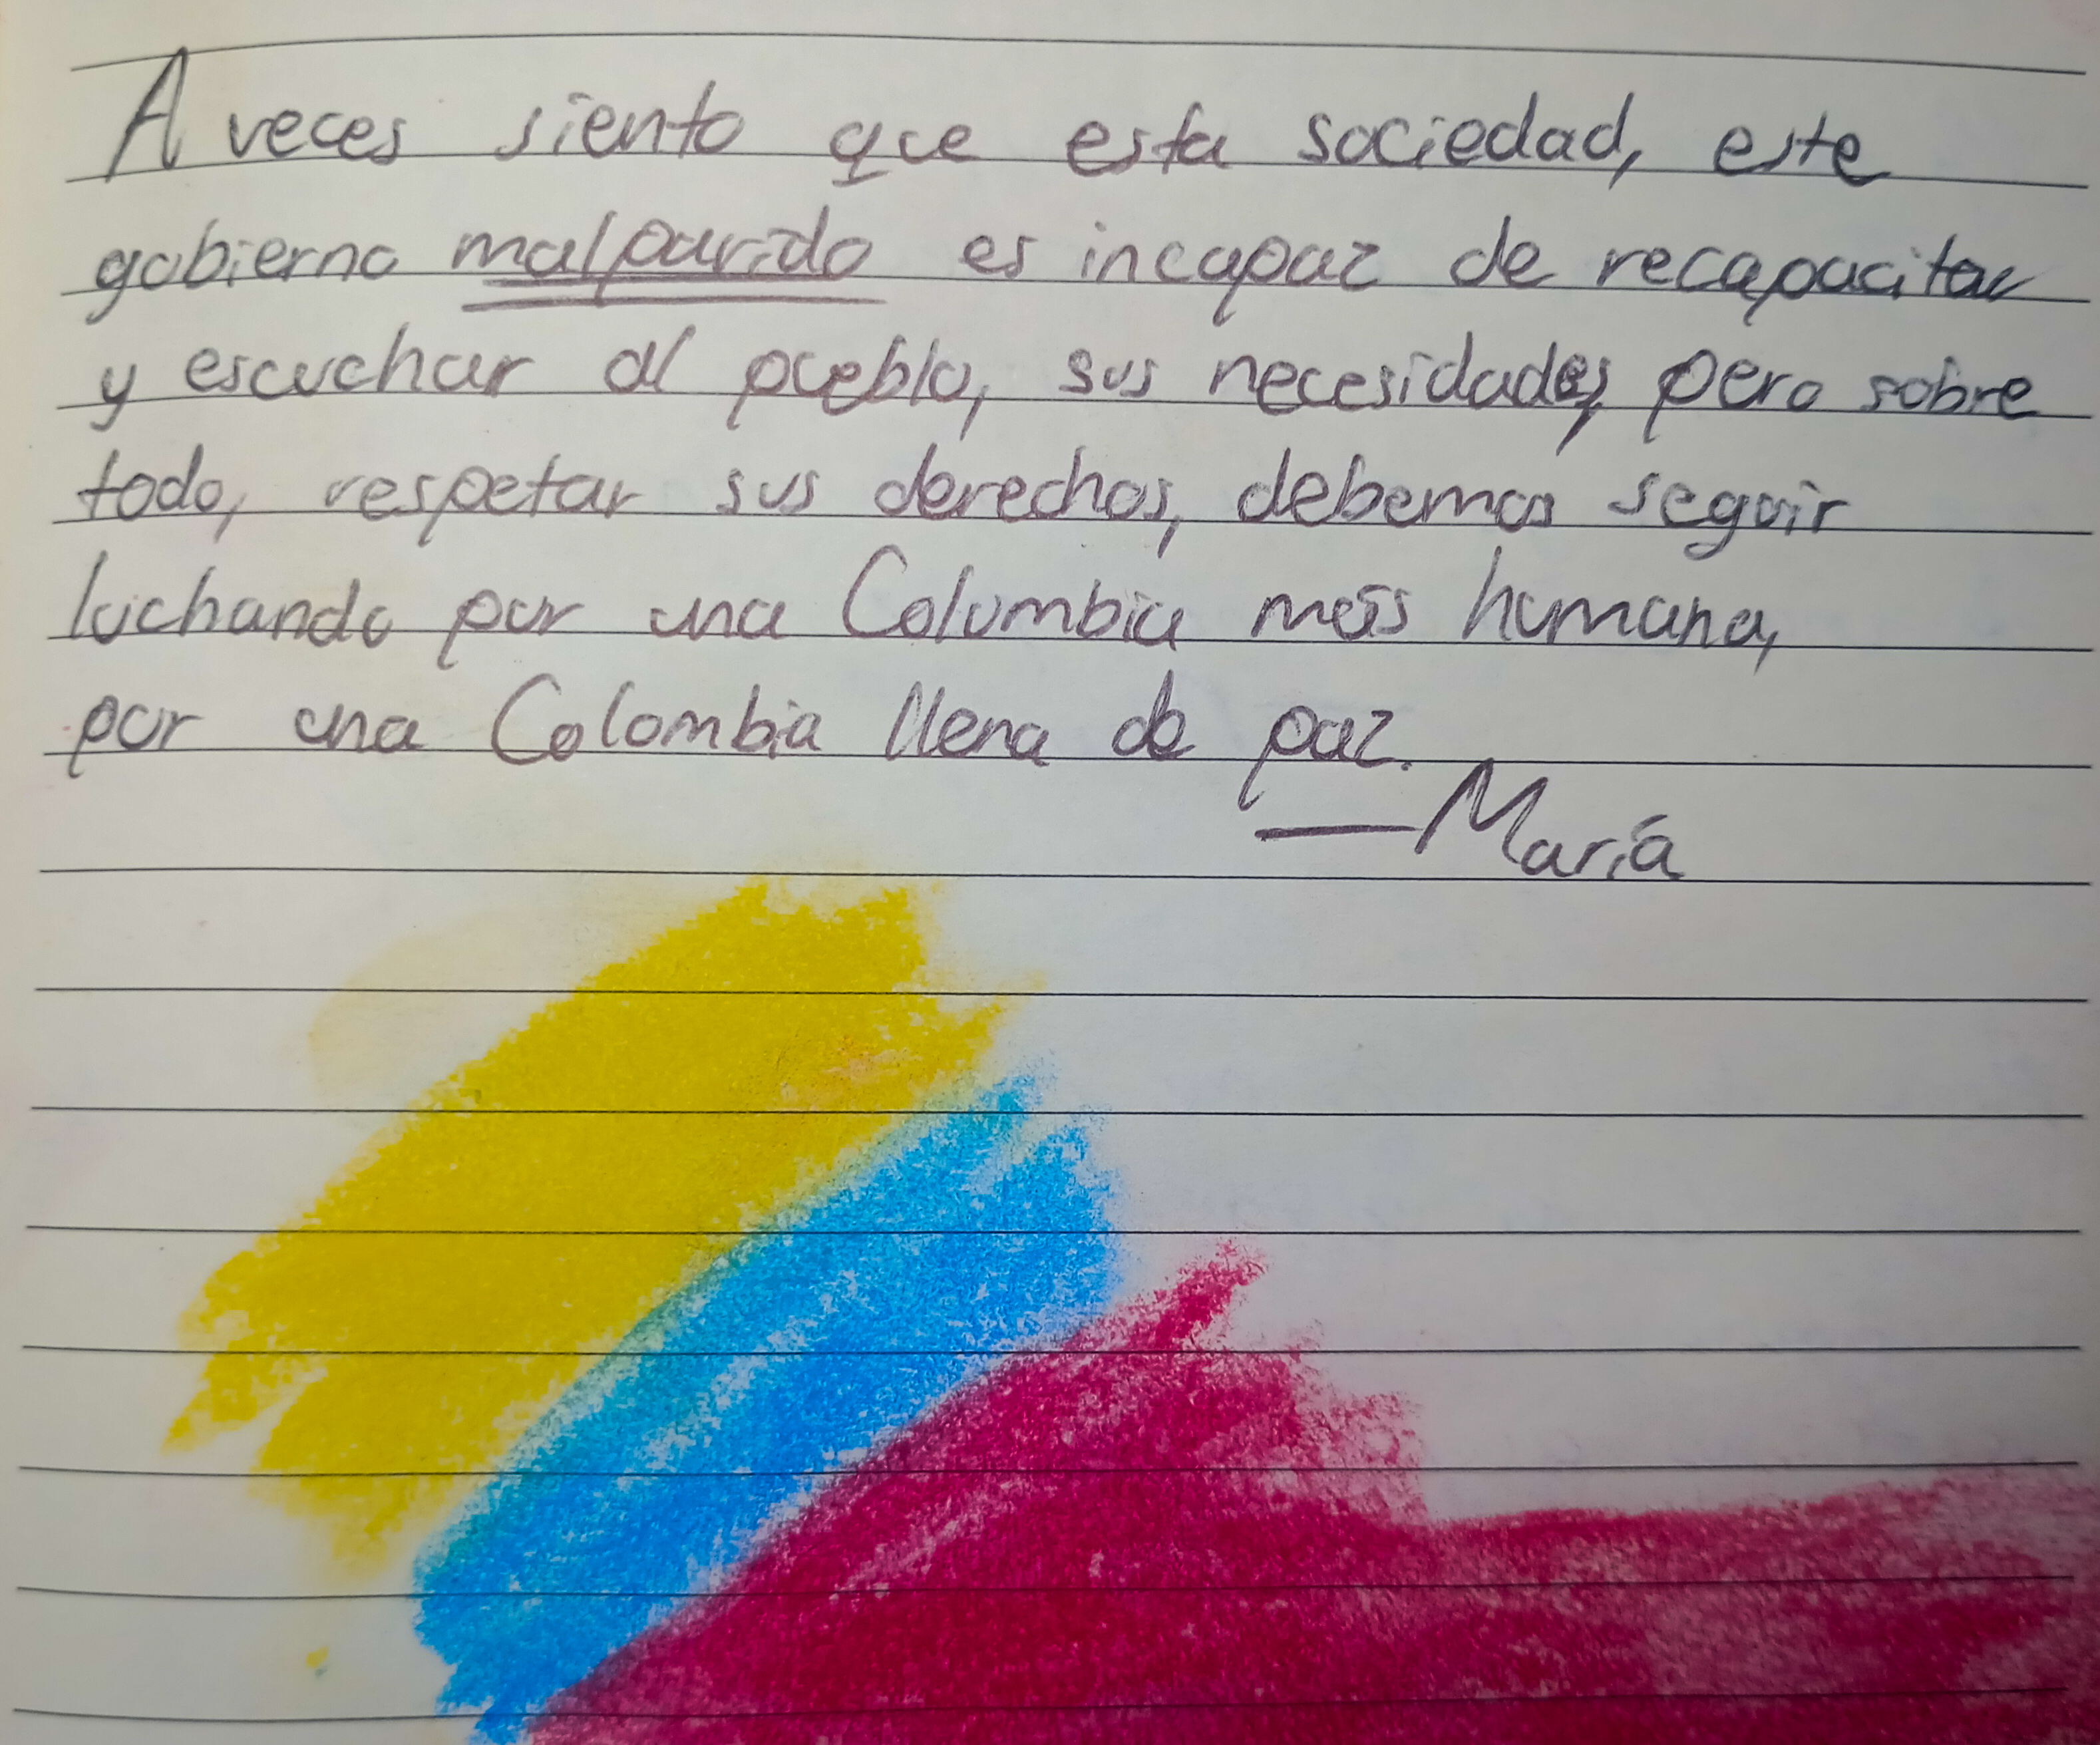 A veces siento que esta sociedad, este
gobierno malparido es incapaz de recapacitar
y escuchar al pueblo, sus necesidades, pero sobre
todo, respetar sus derechos, debemos seguir
luchando por una Colombia más humana,
por una Colombia llena de paz.
—María